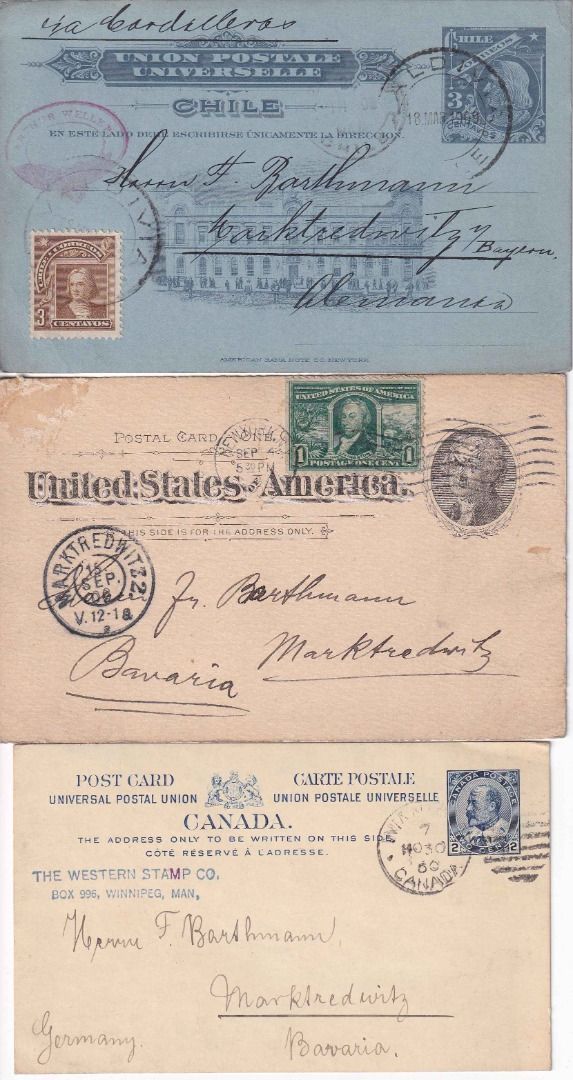 via Cordilleras
UNION POSTALE
UNIVERSELLE
CHILE
CHILE
CORREOS
3
CENTAVOS
18 MAR 1909
EN ESTE LADO DEBE ESCRIBIRSE ÚNICAMENTE LA DIRECCION.
Herrn F. Barthmann
Marktredwitz
Bayern
Alemania
3
CENTAVOS
AMERICAN BANK NOTE CO. NEW YORK
POSTAL CARD - ONE
UNITED STATES OF AMERICA
1
1
POSTAGE ONE CENT
SEP 4
5 30 PM
United States America.
THIS SIDE IS FOR THE ADDRESS ONLY.
MARKTREDWITZ 2
15
SEP.
V. 12-1
Fr. Barthmann
Marktredwitz
Bavaria
POST CARD
CARTE POSTALE
UNIVERSAL POSTAL UNION
UNION POSTALE UNIVERSELLE
CANADA.
CANADA POSTAGE
2
2
CENTS
THE ADDRESS ONLY TO BE WRITTEN ON THIS SIDE
CÔTÉ RÉSERVÉ À L'ADRESSE.
7
CANADA
THE WESTERN STAMP CO.
BOX 996, WINNIPEG, MAN,
Herrn F. Barthmann,
Marktredwitz
Germany.
Bavaria.